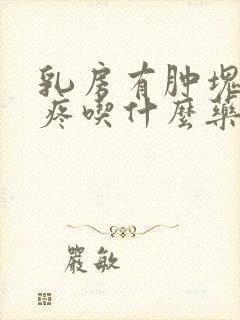 乳房有肿塊
疼喫什麼藥
嚴敏